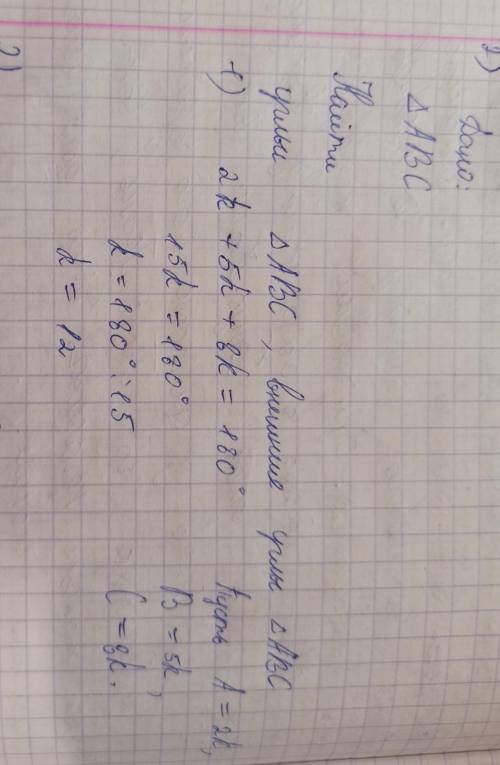 2) Дано:
△ABC
Найти
углы △ABC, внешние углы △ABC
1) 2k + 5k + 8k = 180° Пусть A = 2k,
15k = 180° B = 5k,
k = 180° : 15 C = 8k.
k = 12
2)